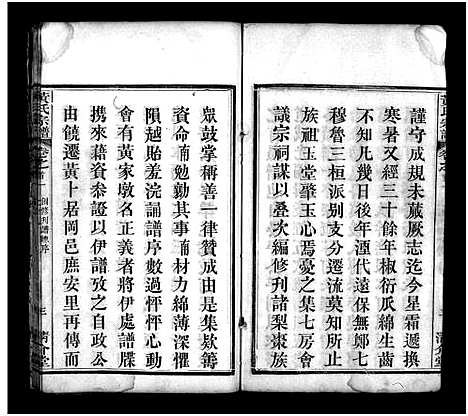 謹守成規未蕆厥志迄今星霜遞換
寒暑又經三十餘年椒衍瓜綿生齒
不知凡幾日後年湮代遠保無鄭七
穆魯三桓派别支分遷流莫知所止
族祖玉堂肇玉心焉憂之集七房會
議宗祠謀以叠次編修刊諸梨棗族
衆鼓掌稱善一律贊成由是集欵籌
資命喃勉勷其事喃材力綿薄深懼
隕越貽羞浣誦譜序數過怦怦心動
會有黄家墩名正義者將伊處譜牒
携來藉資叅證以伊譜攷之自政公
由饒遷黄十居岡邑庶安里再傳而
黄氏宗譜
卷之首
創修刊譜總序
三
清介堂